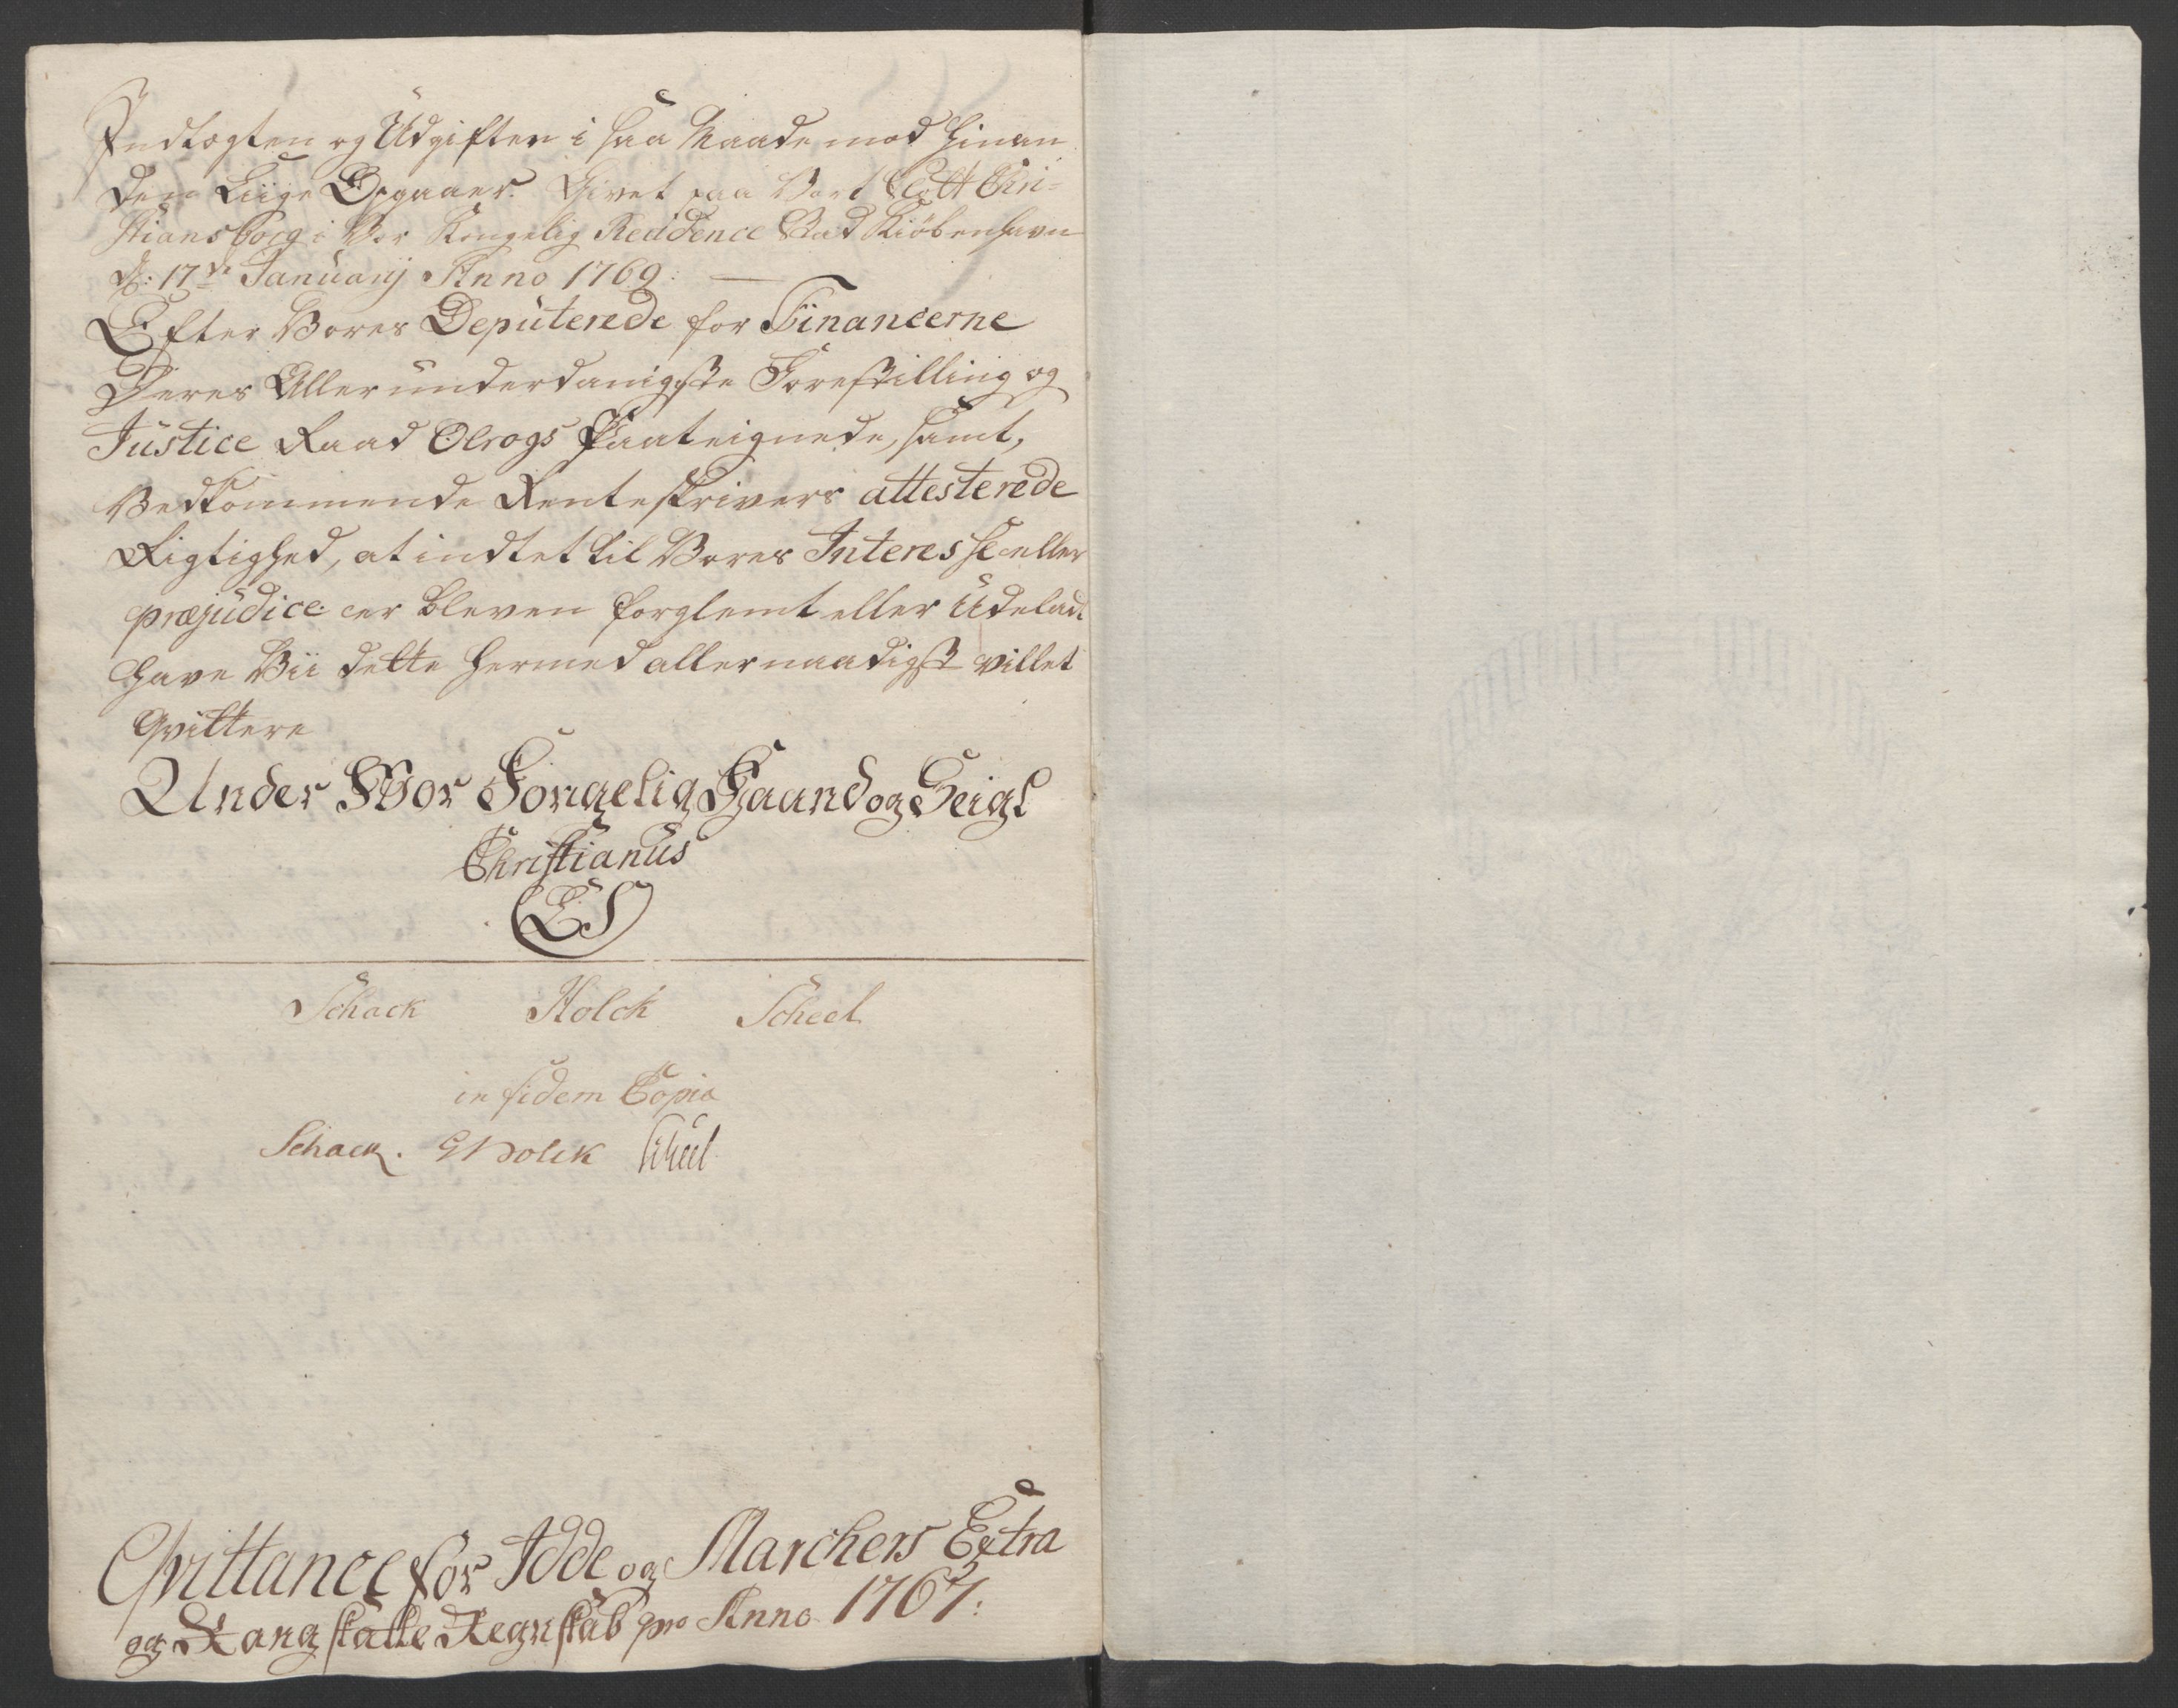 Indtægten og Udgiften i saa Maade mod hinan
den Liige Opgaaer. Givet paa Vort Slott Chri=
stiansborg i Vor Kongelig Residence Stad Kiöbenhavn
d: 17de Januarij Anno 1769:
Efter Vores Deputerede for Financerne
Deres Allerunderdanigste Forestilling og
Justice Raad Olrogs Paateignede, samt,
Vedkommende Renteskrivers attesterede
Rigtighed, at indtet til Vores Interesse eller
præjudice er bleven forglemt eller Udeladt
have Vii dette hermed allernaadigst villet
Qvittere
Under Vor Kongelig Haand og Seigl
Christianus
LS
Schack Holck Scheel
in fidem Copia
Schack. GHolck Scheel
Qvittance for Idde og Marchers Extra
og Rangskatte Regnskab pro Anno 1767: